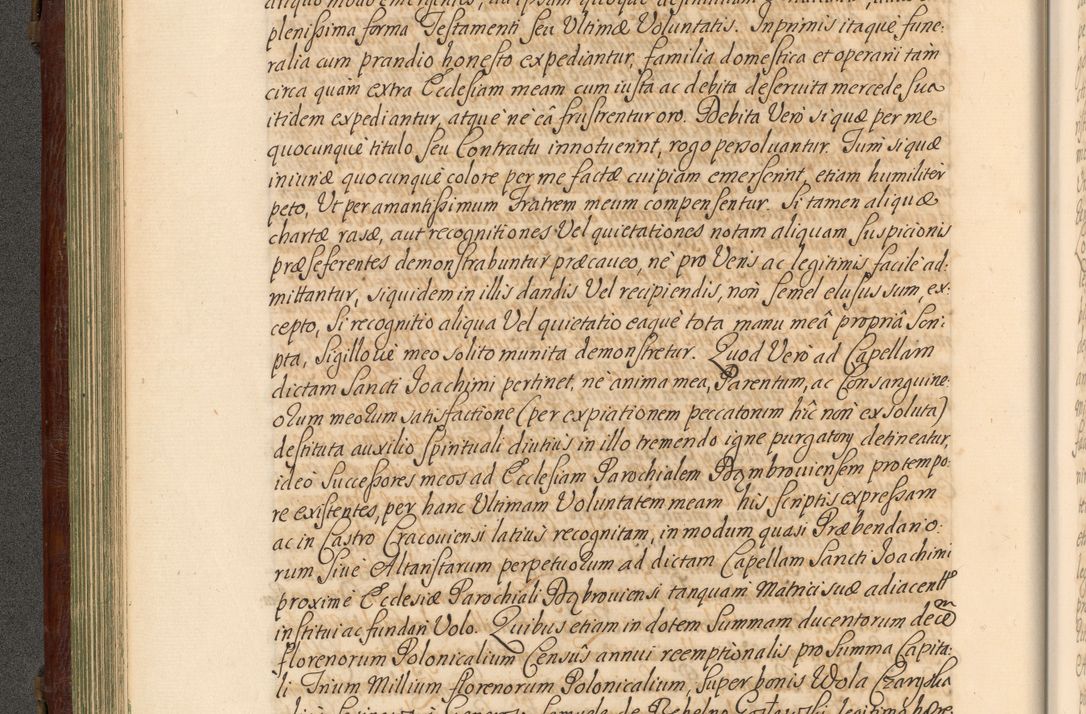 plenissima forma Testamenti seu Ultimæ Voluntatis. Inprimis itaque fune:
ralia cum prandio honesto expediantur, familia domestica et operarii tam
circa quam extra Ecclesiam meam cum iusta ac debita deseruita mercede sua
itidem expediantur, atque ne eâ frustrentur oro. Debita Vero si quæ per me
quocunque titulo seu Contractu innotuerint, rogo persoluantur. Tum si quæ
iniuriæ quocunque colore per me factæ cuipiam emerserint, etiam humiliter
peto, Ut per amantissimum Fratrem meum compensentur. Si tamen aliquæ
chartæ rasæ, aut recognitiones Vel quietationes notam aliquam suspicionis
præseferentes demonstrabuntur præcaueo, ne pro Veris ac legitimis facile ad:
mittantur, siquidem in illis dandis Vel recipiendis, non semel elusus sum, ex:
cepto, Si recognitio aliqua Vel quietatio eaque tota manu meâ propriâ scri:
pta, Sigilloue meo solito munita demonstretur. Quod Vero ad Capellam
dictam Sancti Joachimi pertinet, ne anima mea, Parentum, ac Consanguine:
orum meorum satisfactione (per expiationem peccatorum hîc non exsoluta)
destituta auxilio spirituali diutius in illo tremendo igne purgatory detineatur,
ideo Successores meos ad Ecclesiam Parochialem Dąmbrouiensem pro tempo:
re existentes, per hanc Ultimam Voluntatem meam his scriptis expressam
ac in Castro Cracouiensi latius recognitam, in modum quasi Præbendario:
rum Siue Altaristarum perpetuorum ad dictam Capellam Sancti Joachimi
proxime Ecclesiæ Parochiali Dąbrouiensi tanquam Matrici suæ adiacentem
institui ac fundari Volo. Quibus etiam in dotem Summam ducentorum decem
florenorum Polonicalium Censûs annui reemptionalis pro Summa Capita:
li Trium Millium florenorum Polonicalium, Super bonis Wola